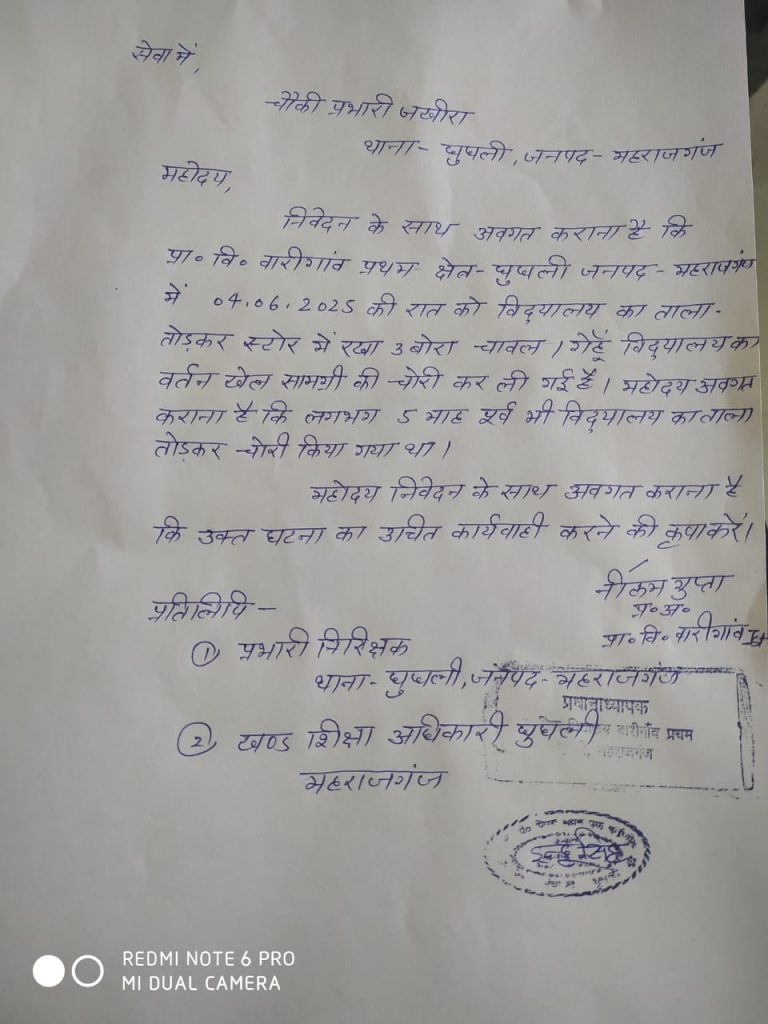 सेवा में,
चौकी प्रभारी जखीरा
थाना- घुघली, जनपद- महराजगंज
महोदय,
निवेदन के साथ अवगत कराना है कि
प्रा० वि० वारीगांव प्रथम क्षेत्र- घुघली जनपद- महराजगंज
में 04.06.2025 की रात को विद्यालय का ताला-
तोड़कर स्टोर में रखा 3 बोरा चावल / गेहूँ विद्यालय का
वर्तन खेल सामग्री की चोरी कर ली गई है। महोदय अवगत
कराना है कि लगभग 5 माह पूर्व भी विद्यालय का ताला
तोड़कर चोरी किया गया था।
महोदय निवेदन के साथ अवगत कराना है
कि उक्त घटना का उचित कार्यवाही करने की कृपा करें।
नीलम गुप्ता
प्र० अ०
प्रा० वि० वारीगांव Ist
प्रतिलिपि -
① प्रभारी निरिक्षक
थाना- घुघली, जनपद- महराजगंज
प्रधानाध्यापक
वारीगाँव प्रथम
महराजगंज
② खण्ड शिक्षा अधिकारी घुघली
महराजगंज
REDMI NOTE 6 PRO
MI DUAL CAMERA